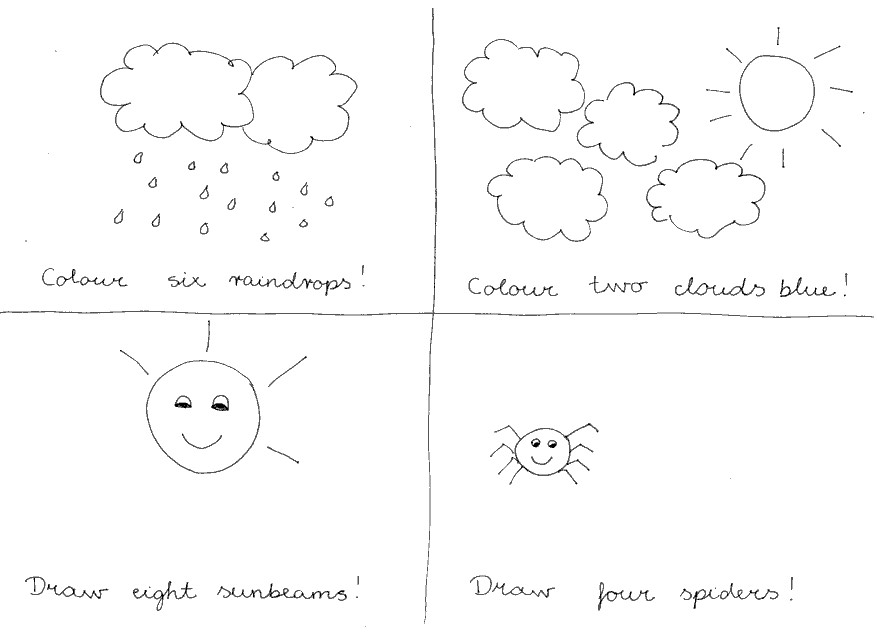 Colour six raindrops!
Colour two clouds blue!
Draw eight sunbeams!
Draw four spiders!